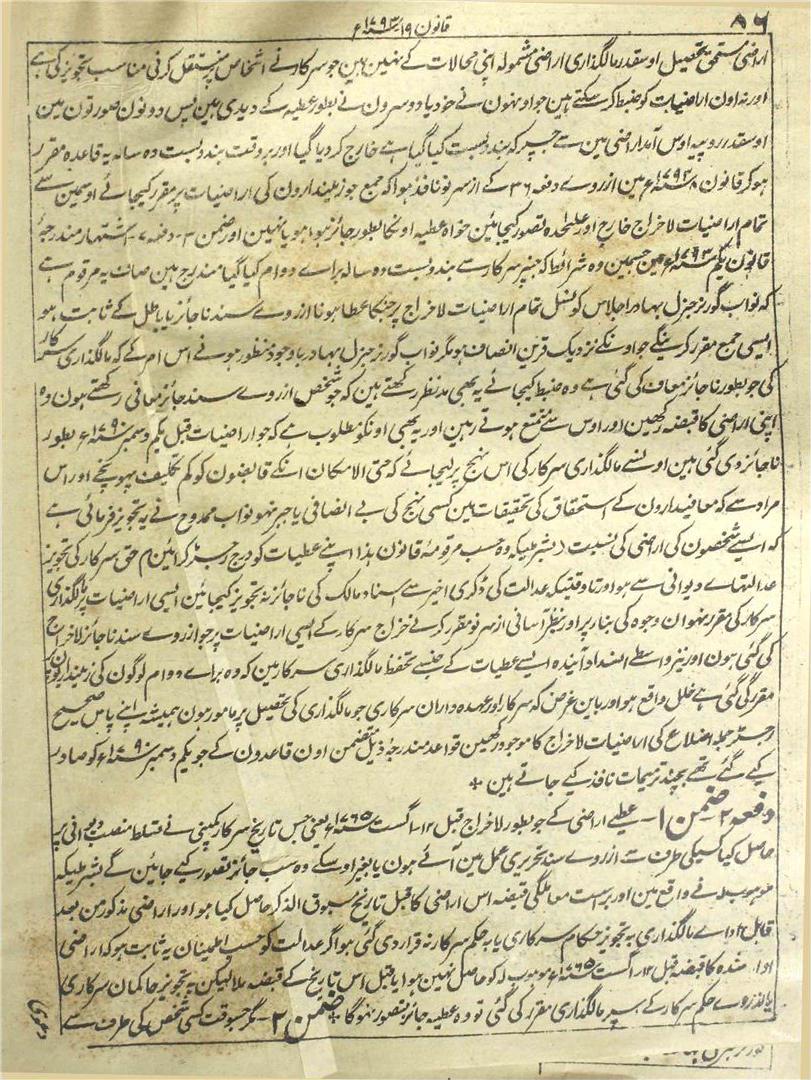 ٨٦ قانون ١٩ سنہ ١٧٩٣ع
اراضی مستحق تحصیل اوسقدر مالگذاری اراضی مشمولہ اپنی محالات کے نہین ہین جو سرکار نے اشخاص پر منتقل کرنی مناسب تجویز کی ہے
اور نہ اون اراضیات کو ضبط کر سکتے ہین جو اونہون نے خود یا دوسرون نے بطور عطیہ کے دیدی ہین پس دونون صورتون مین
اوسقدر روپیہ اوس آمد اراضی مین سے جسپر کہ بندوبست کیا گیا ہے خارج کر دیا گیا اور بروقت بندوبست دہ سالہ یہ قاعدہ مقرر
ہو کر قانون ٨ سنہ ١٧٩٣ع مین ازروے دفعہ ٣٦ کے ازسرنو نافذ ہوا کہ جمع جو زمیندارون کی اراضیات پر مقرر کیجائے اوسمین سے
تمام اراضیات لاخراج خارج اور علیحدہ تصور کیجائین خواہ عطیہ اونکا بطور جائز ہوا ہو یا نہین اور ضمن ٣ - دفعہ ٧ - اشتہار مندرجہ
قانون یکم سنہ ١٧٩٣ع مین جسمین وہ شرائط کہ جنپر سرکار سے بندوبست دہ سالہ براے دوام کیا گیا مندرج ہین صاف یہ مرقوم ہے
کہ نواب گورنر جنرل بہادر اجلاس کونسل تمام اراضیات لاخراج پر جنکا عطا ہونا ازروے سند ناجائز یا باطل کے ثابت ہو
ایسی جمع مقرر کرینگے جو اونکے نزدیک قرین انصاف ہو مگر نواب گورنر جنرل بہادر باوجود منظور ہونے اس امر کے کہ مالگذاری سرکار
کی جو بطور ناجائز معاف کی گئی ہے وہ ضبط کیجائے یہ بھی مدنظر رکھتے ہین کہ جو شخص ازروے سند جائز معافی رکھتے ہون وہ
اپنی اراضی کا قبضہ رکھین اور اوس سے متمتع ہوتے رہین اور یہ بھی اونکو مطلوب ہے کہ جو اراضیات قبل یکم دسمبر سنہ ١٧٩٠ع بطور
ناجائز دی گئی ہین اونسے مالگذاری سرکار کی اس نہج پر لیجائے کہ حتی الامکان انکے قابضون کو کم تکلیف پہونچے اور اس
مراد سے کہ معافیدارون کے استحقاق کی تحقیقات مین کسی نہج کی بے انصافی یا جبر نہو نواب ممدوح نے یہ تجویز فرمائی ہے
کہ ایسے شخصون کی اراضی کی نسبت (بشرطیکہ وہ حسب مرقومۂ قانون ہذا اپنے عطیات کو درج رجسٹر کرائین) حق سرکار کی تجویز
عدالتہاے دیوانی سے ہو اور تاوقتیکہ عدالت کی ڈگری اخیر سے اسناد مالک کی ناجائز نہ تجویز کیجائین ایسی اراضیات پر مالگذاری
سرکار کی مقرر نہو ان وجوہ کی بنا پر اور بنظر آسانی ازسرنو مقرر کرنے خراج سرکار کے ایسی اراضیات پر جو ازروے سند ناجائز لاخراج
کی گئی ہون اور نیز واسطے انسداد آیندہ ایسے عطیات کے جنسے تحفظ مالگذاری سرکار مین کہ وہ براے دوام لوگون کی زمینداریون پر
مقرر کی گئی ہے خلل واقع ہو اور باین غرض کہ سرکار اور عہدہ داران سرکاری جو مالگذاری کی تحصیل پر مامور ہون ہمیشہ اپنے پاس صحیح
رجسٹر جملہ اضلاع کی اراضیات لاخراج کا موجود رکھین قواعد مندرجۂ ذیل متضمن اون قاعدون کے جو یکم دسمبر سنہ ١٧٩٠ع کو صادر
کیے گئے تھے بچند ترمیمات نافذ کیے جاتے ہین *
دفعہ ٢ ضمن ١ - عطیے اراضی کے جو بطور لاخراج قبل ١٢ - اگست سنہ ١٧٦٥ع یعنی جس تاریخ سرکار کمپنی نے تسلط منصب دیوانی پر
حاصل کیا کسیکی طرف سے ازروے سند تحریری عمل مین آئے ہون یا بغیر اوسکے وہ سب جائز تصور کیے جائین گے بشرطیکہ
موہوب لہ نے واقع مین اور براست معاملگی قبضہ اس اراضی کا قبل تاریخ مسبوق الذکر حاصل کیا ہو اور اراضی مذکور من بعد
قابل اداے مالگذاری بہ تجویز حکام سرکاری یا بہ حکم سرکار نہ قرار دی گئی ہو اگر عدالت کو حسب اطمینان یہ ثابت ہو کہ اراضی
کا قبضہ قبل ١٢ - اگست سنہ ١٧٦٥ع موہوب لہ کو حاصل نہین ہوا یا قبل اس تاریخ کے قبضہ ملا لیکن بہ تجویز حاکمان سرکاری
یا ازروے حکم سرکار کے اوسپر مالگذاری مقرر کی گئی تو وہ عطیہ جائز متصور نہوگا * ضمن ٢ - مگر جسوقت کسی شخص کی طرف سے
دعوی